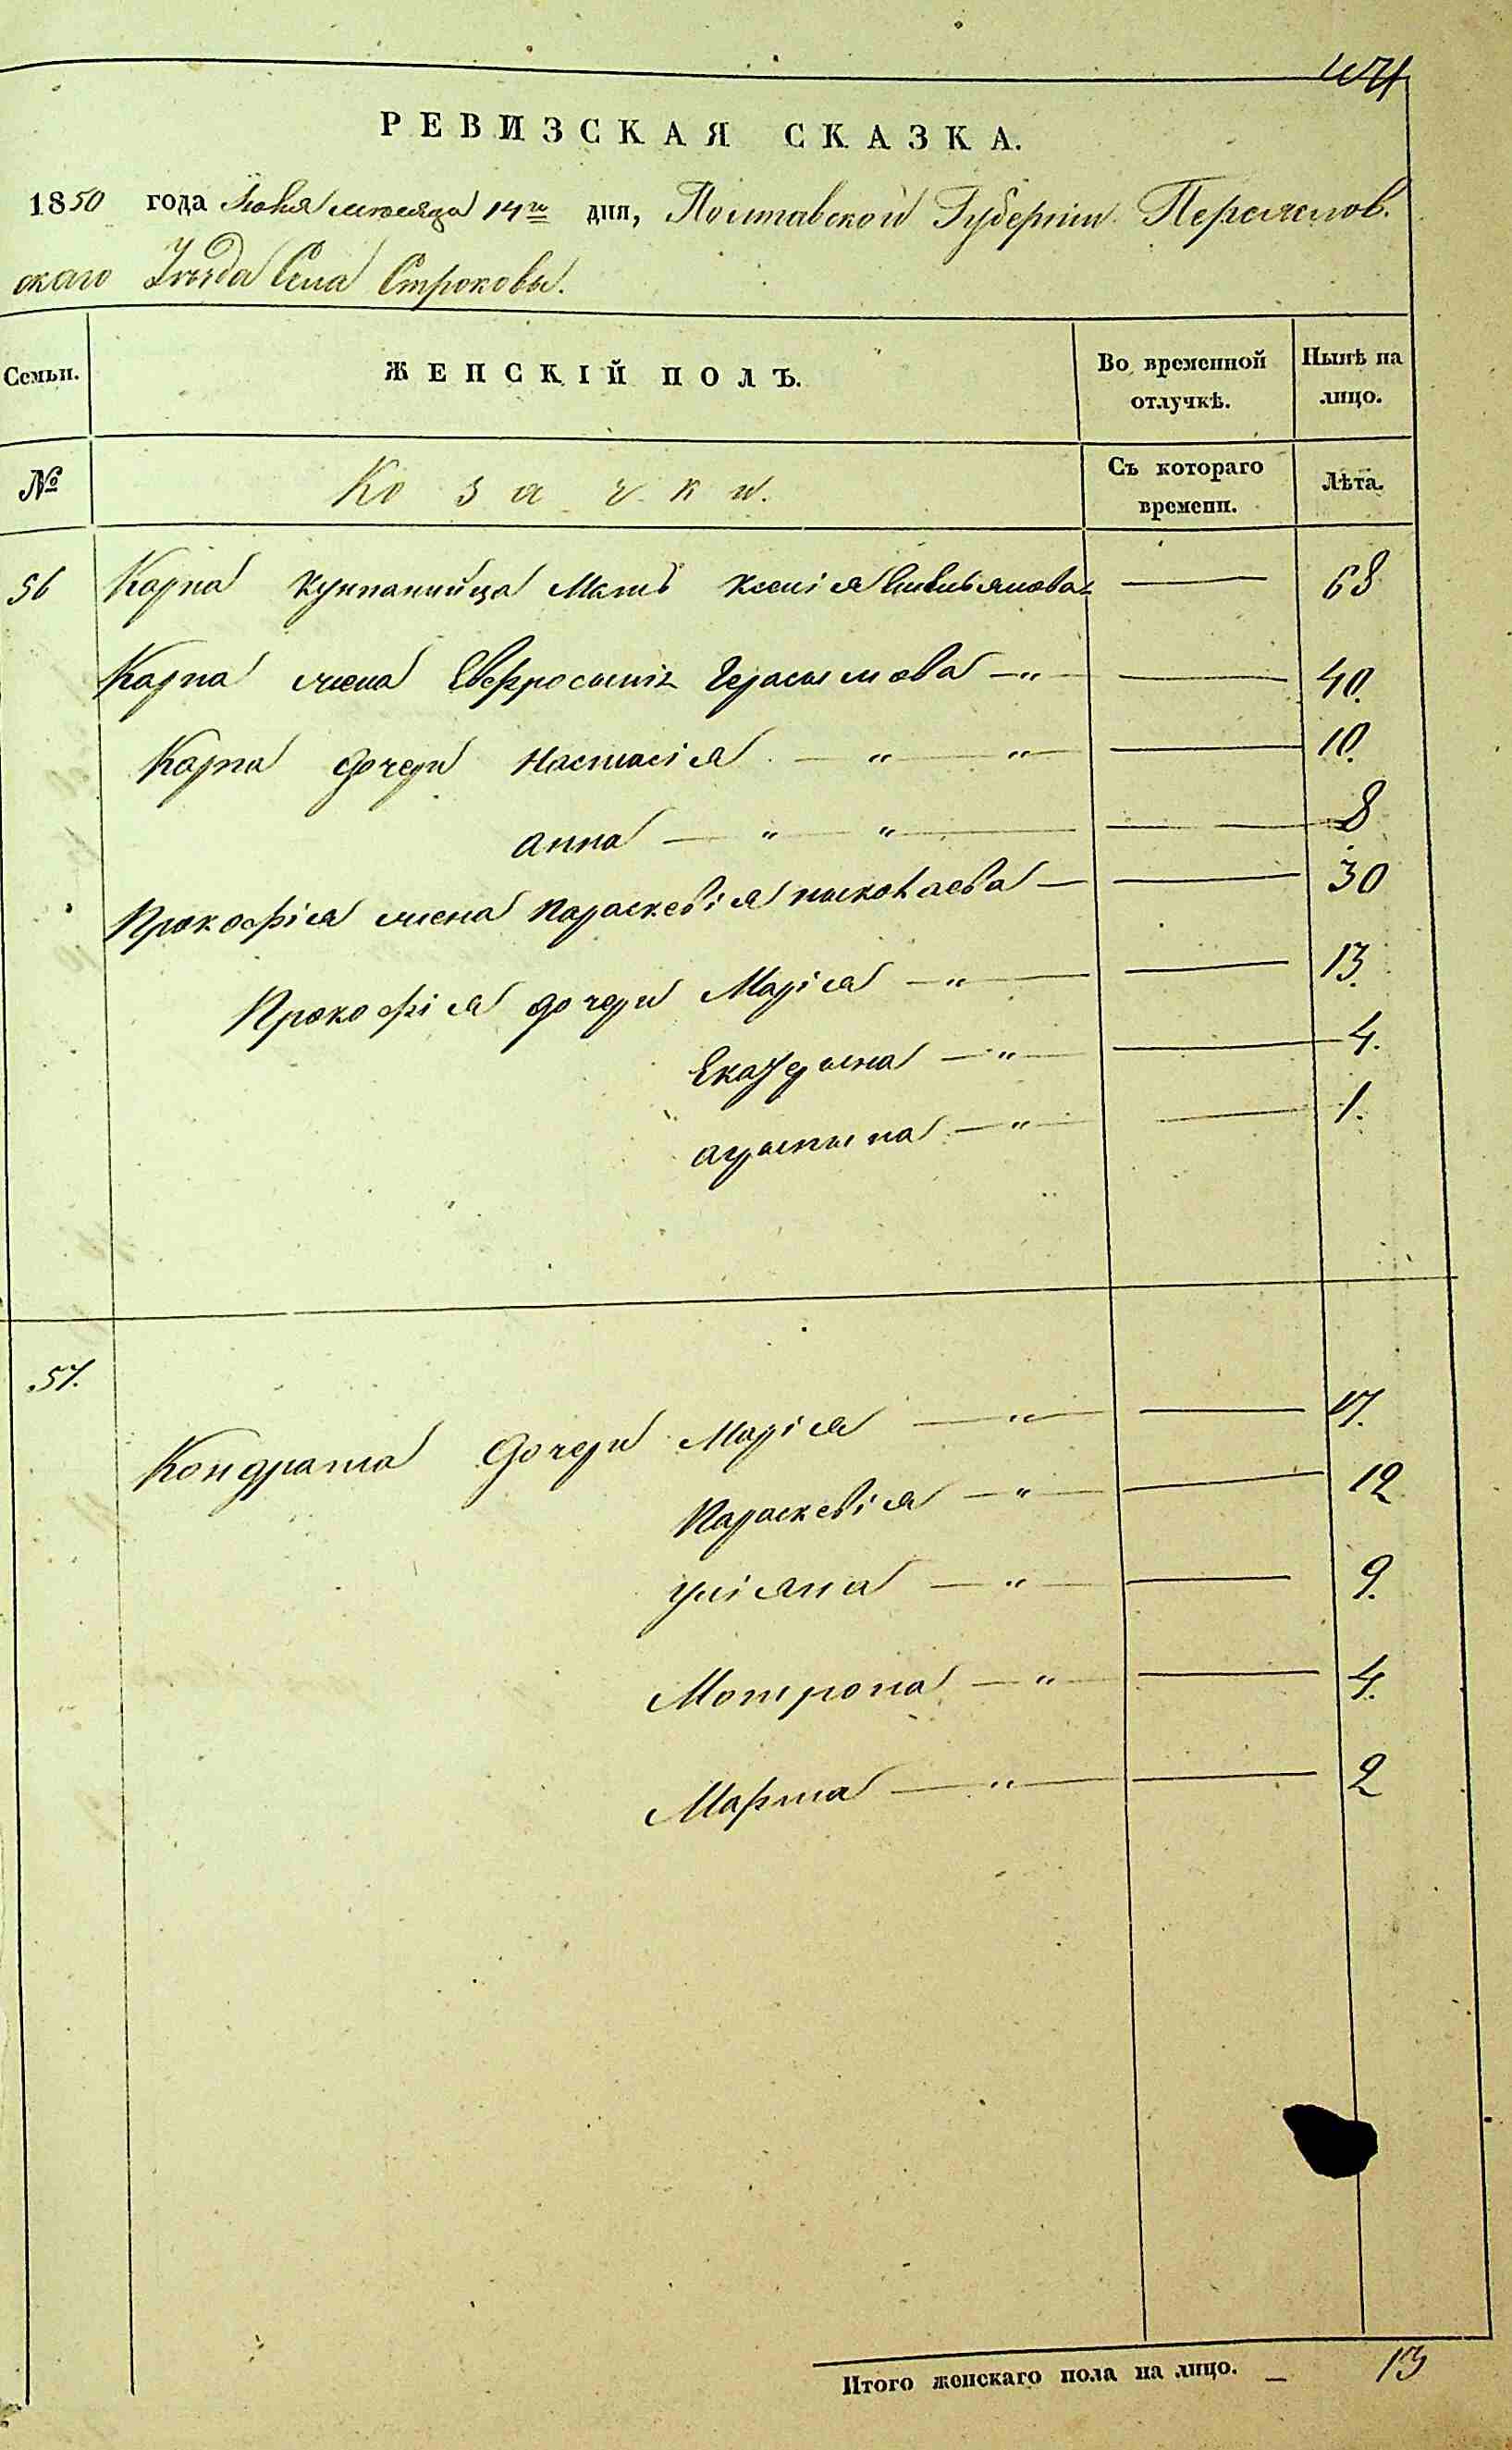 РЕВИЗСКАЯ СКАЗКА.
1850 года Июня месяца 14го дня, Полтавской Губерніи Переяслов.
скаго Уѣзда Села Строковы.
Семьи. ЖЕНСКІЙ ПОЛЪ. Во временной отлучкѣ. Нынѣ на лицо.
№ Козачки. Съ котораго времени. Лѣта.
56 Карпа Мать Ксенія — 68
Карпа жена Евфросинія Герасимова —„— — 40.
Карпа дочери Настасія — „ — „ — 10.
Анна — „ — „ — 8
Прокофія жена Параскевія Николаева — — 30
Прокофія дочери Марія —„— — 13.
Екатерина —„— — 4.
—„— — 1.
57.
Кондрата дочери Марія —„— — 17.
Параскевія —„— — 12
Уліяна —„— — 9.
Мотрона —„— — 4.
Марѳа —„— — 2
Итого женскаго пола на лицо. — 13